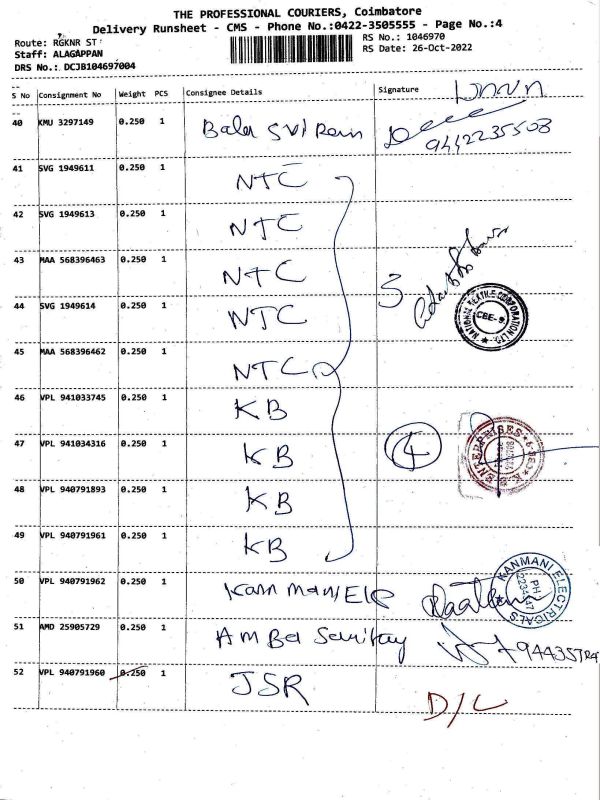 THE PROFESSIONAL COURIERS, Coimbatore
Delivery Runsheet - CMS - Phone No.:0422-3505555 - Page No.:4
Route: RGKNR ST RS No.: 1046970
Staff: ALAGAPPAN RS Date: 26-Oct-2022
DRS No.: DCJB104697004
S No Consignment No Weight PCS Consignee Details Signature
40 KMU 3297149 0.250 1 Bala
9442235508
41 SVG 1949611 0.250 1 NTC
42 SVG 1949613 0.250 1 NTC
43 MAA 568396463 0.250 1 NTC 5
44 SVG 1949614 0.250 1 NTC
NATIONAL TEXTILE CORPORATION LTD.
CBE-9
45 MAA 568396462 0.250 1 NTC
46 VPL 941033745 0.250 1 KB
47 VPL 941034316 0.250 1 KB 4
ENTERPRISES
48 VPL 940791893 0.250 1 KB
49 VPL 940791961 0.250 1 KB
50 VPL 940791962 0.250 1 Kanmani Ele
KANMANI ELECTRICALS
PH
51 AMD 25905729 0.250 1 Amba Sanitary
52 VPL 940791960 0.250 1 JSR D/L